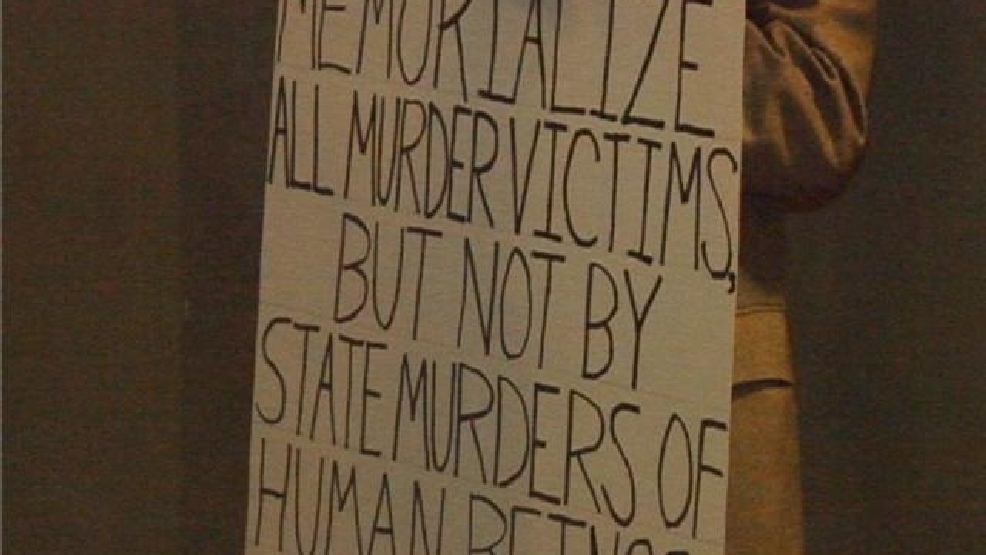 MEMORIALIZE
ALL MURDER VICTIMS,
BUT NOT BY
STATE MURDERS OF
HUMAN BEINGS